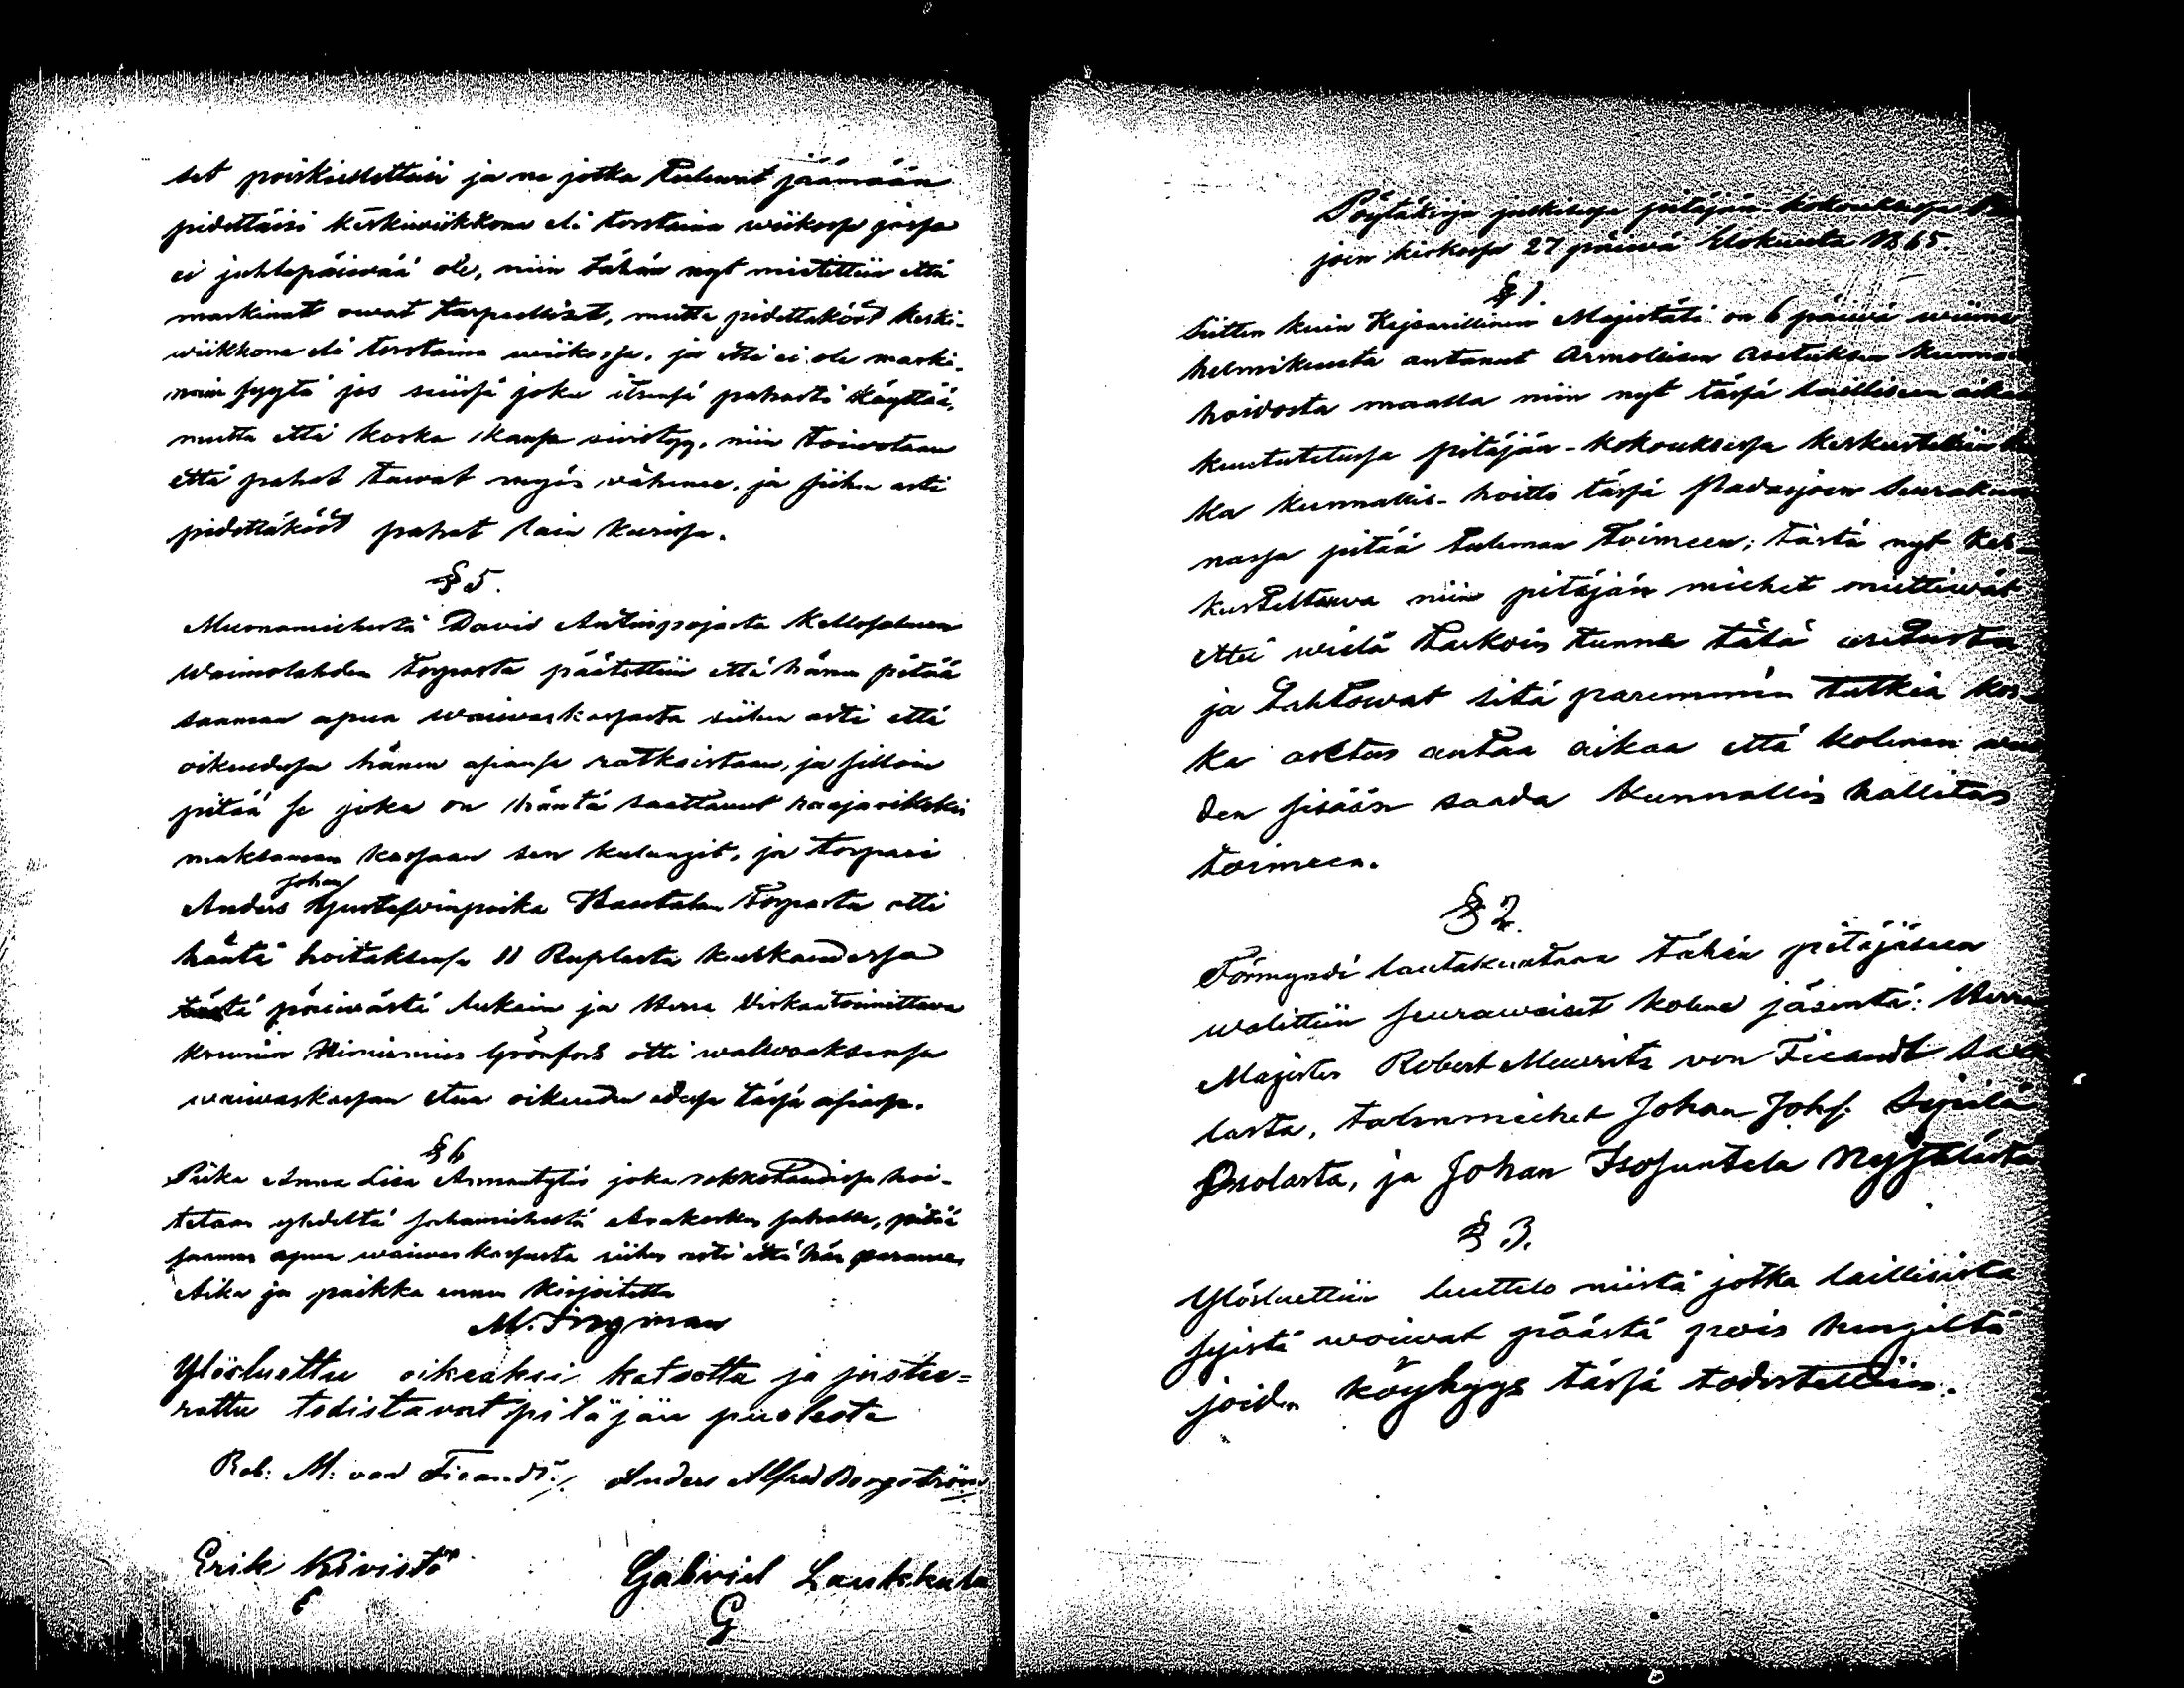 set poiskiellettäisi ja ne jotka tulewat jäämään
pidettäisi keskiwiikkona eli torstaina wiikossa jossa
ei juhlapäiwää ole, niin tähän nyt mietittiin että
markinat owat tarpeelliset, mutta pidettäkööt keski-
wiikkona eli torstaina wiikossa, ja että ei ole marki-
nain syytä jos siinä joku itsensä pahasti käyttää,
mutta että koska kansa siwistyy, niin toiwotaan
että pahat tawat myös vähenee, ja siihen asti
pidettäkööt pahat lain kurissa.
§ 5.
Muonamiehestä David Antinpojasta Kellosalmen
Waimolahden torpasta päätettiin että hänen pitää
saaman apua waiwaskassasta siihen asti että
oikeudessa hänen asiansa ratkaistaan, ja silloin
pitää se joka on häntä saattanut raajarikoksi
maksaman kassaan sen kulungit, ja torpari
Johan
Anders Gustafwinpoika Hautalan torpasta otti
häntä hoitaksensa 11 Ruplasta kuukaudessa
tästä päiwästä lukein ja Herra Virkaatoimittava
kruunun Nimismies Grönfors otti walwoaksensa
waiwaskassan etua oikeuden edessä tässä asiassa.
§ 6
Piika Anna Lisa Antintytär joka rokkotaudissa hoi-
tetaan yhdeltä sahamieheltä Arrakosken sahalla, pitää
saaman apua waiwaskassasta siihen asti että hän paranee.
Aika ja paikka ennen kirjoitettu
M. Tingman
Ylösluettu oikeaksi katsottu ja justee-
rattu todistavat pitäjän puolesta
Rob: M: von Fieandt./. Anders Alfred Borgström
Erik Kivistö Gabriel Laukkala
G
Pöytäkirja julkisessa pitäjän-kokouksessa
joen kirkossa 27 päiwä Elokuuta 1865.
§ 1.
Sitten kuin Keisarillinen Majistäti on 6 päiwä wiime
helmikuuta antanut Armollisen Asetuksen kunnallis
hoidosta maalla niin nyt tässä lailliseen aikaan
kuulutetussa pitäjän-kokouksessa keskusteltiin
ka kunnallis-hoitto tässä Padasjoen seurakun
nassa pitää tuleman toimeen; tästä nyt kes-
kusteltaessa niin pitäjän miehet miettiwät
ettei wielä tarkoin tunne tätä asetusta
ja tahtowat sitä paremmin tutkia kos-
ka asetus antaa aikaa että kolmen wuo
den sisään saada kunnallis hallitus
toimeen.
§ 2.
Förmyndi lautakuntaan tähän pitäjäseen
walittiin seurawaiset kolme jäsentä: Herra
Majister Robert Mauritz von Fieandt Saks
lasta, talonmiehet Johan Johs: Sipilä
Osolasta, ja Johan Isosuntela Nyystölästä
§ 3.
Ylösluettiin luettelo niistä jotka laillisista
syistä woiwat päästä pois hengiltä
joiden köyhyys tässä todistettiin.